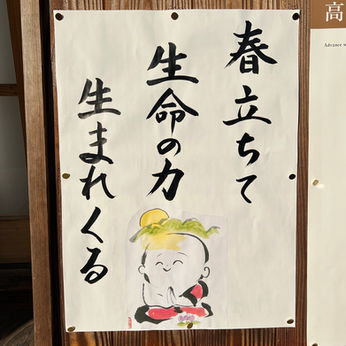 春立ちて
生命の力
生まれくる
高
Advance